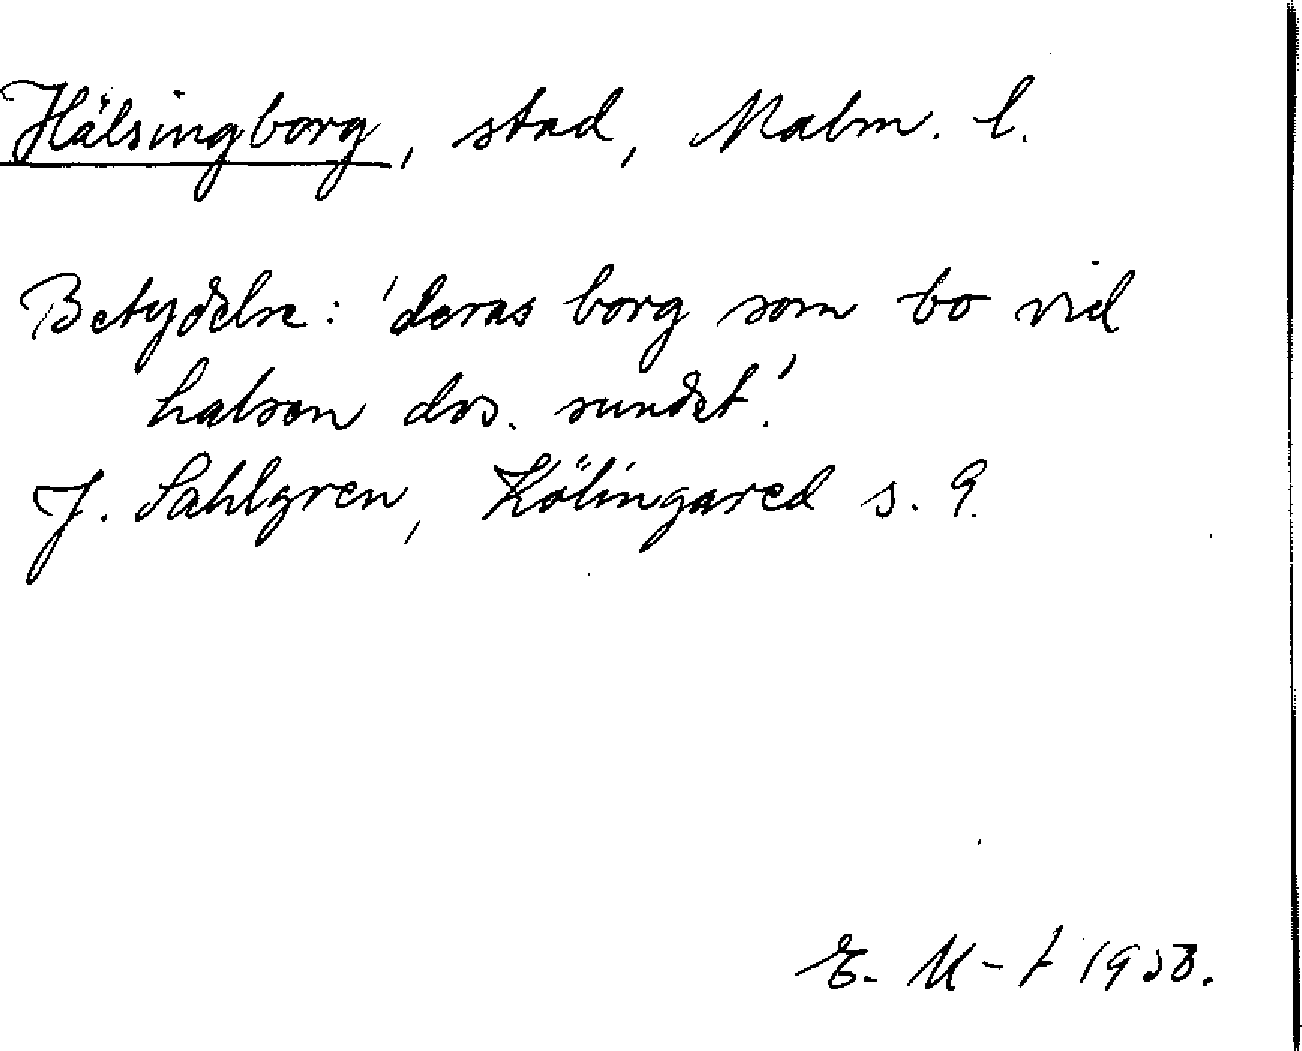 Hälsingborg, stad, Malm. l.
Betydelse: 'deras borg som bo vid
halsen dvs. sundet'.
J. Sahlgren, Kölingared s. 9.
E. M-t